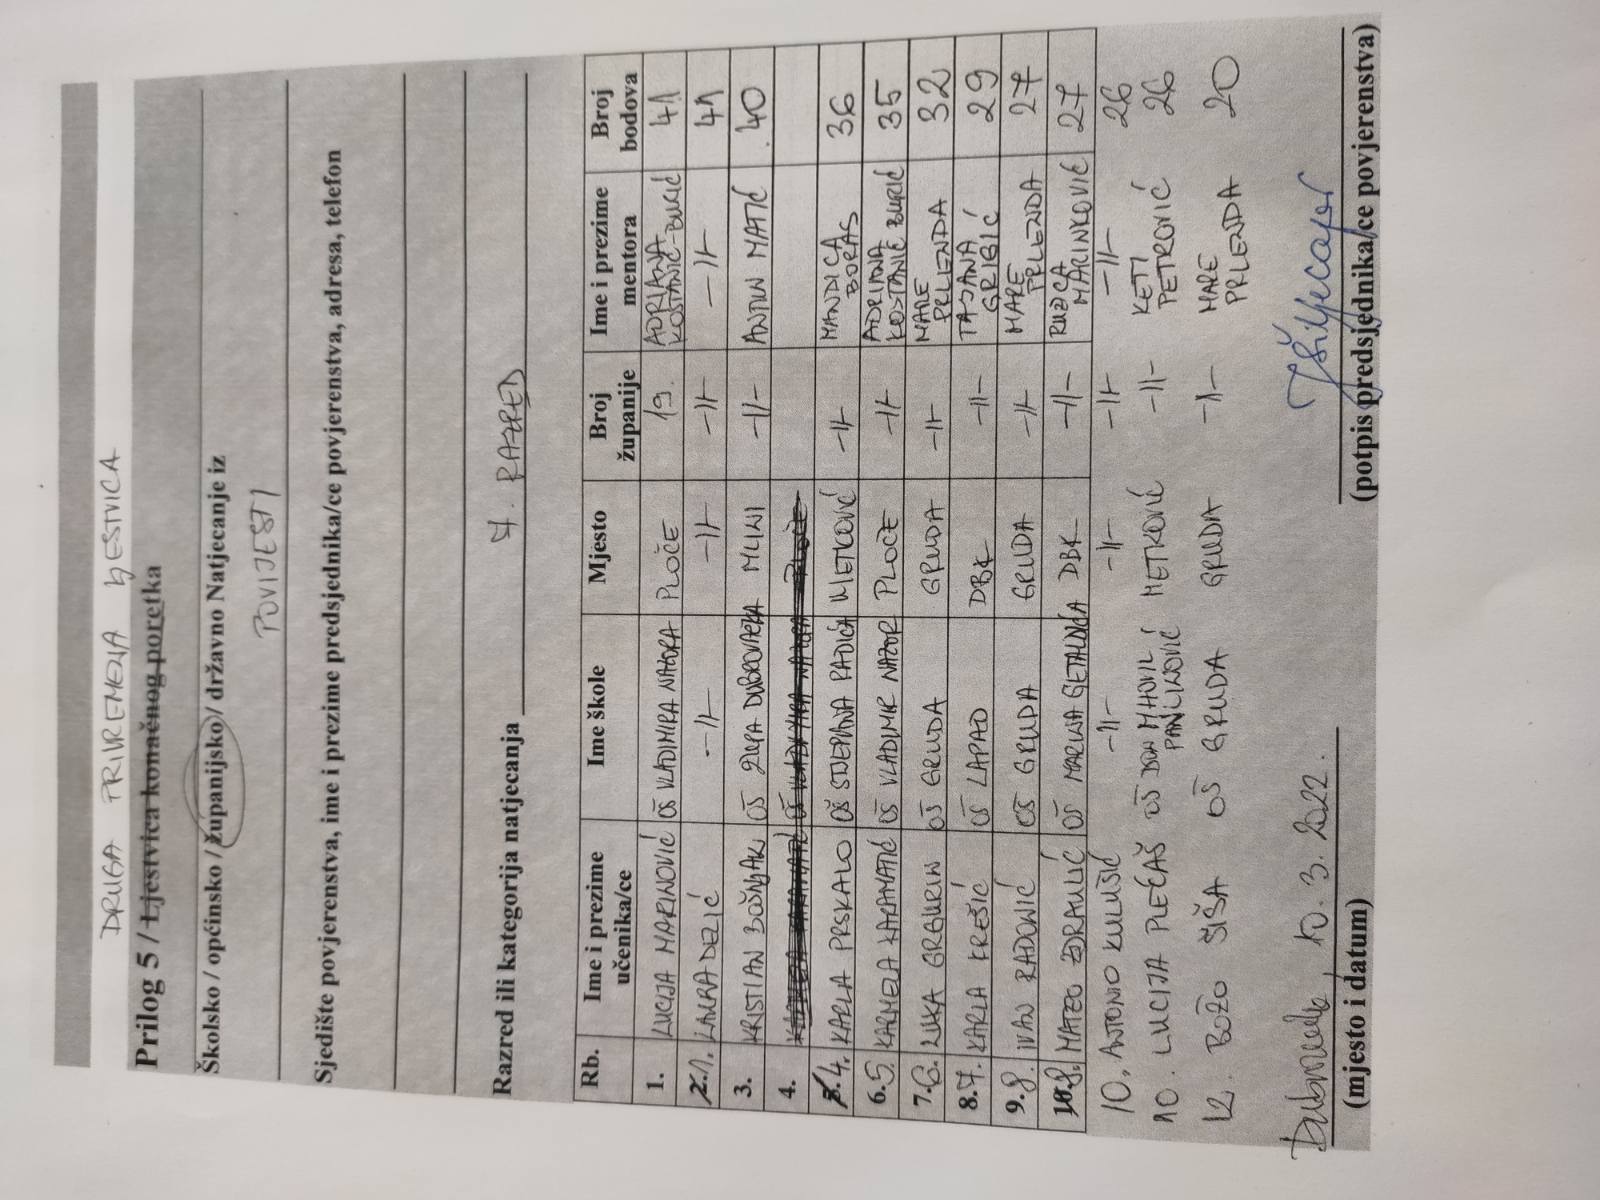 DRUGA PRIVREMENA LJESTVICA
Prilog 5 / Ljestvica konačnog poretka
Školsko / općinsko / županijsko / državno Natjecanje iz
POVIJESTI
Sjedište povjerenstva, ime i prezime predsjednika/ce povjerenstva, adresa, telefon
Razred ili kategorija natjecanja 7. RAZRED
Rb. Ime i prezime učenika/ce Ime škole Mjesto Broj županije Ime i prezime mentora Broj bodova
1. LUCIJA MARINOVIĆ OŠ VLADIMIRA NAZORA PLOČE 19. ADRIANA KOSTANIĆ-BURIĆ 41
2. 1. LAURA DEZIĆ -||- -||- -||- -||- 41
3. KRISTIAN BOŠNJAK OŠ ŽUPA DUBROVAČKA MLINI -||- ANTUN MATIĆ 40
4.
5. 4. KARLA PRSKALO OŠ STJEPANA RADIĆA METKOVIĆ -||- MANDICA BORAS 36
6. 5. KARMELA KARAMATIĆ OŠ VLADIMIR NAZOR PLOČE -||- ADRIANA KOSTANIĆ BURIĆ 35
7. 6. LUKA GRBURIN OŠ GRUDA GRUDA -||- MARE PRLENDA 32
8. 7. KARLA KREŠIĆ OŠ LAPAD DBK -||- TAJANA GRBIĆ 29
9. 8. IVAN RADONIĆ OŠ GRUDA GRUDA -||- MARE PRLENDA 27
10. 8. MATEO ZDRAULIĆ OŠ MARINA GETALDIĆA DBK -||- RUŽICA MARINKOVIĆ 27
10. ANTONIO KULUŠIĆ -||- -||- -||- -||- 26
10. LUCIJA PLEĆAŠ OŠ DON MIHOVIL PAVLINOVIĆ METKOVIĆ -||- KETI PETROVIĆ 26
12. BOŽO ŠIŠA OŠ GRUDA GRUDA -||- MARE PRLENDA 20
Dubrovnik, 10. 3. 2022.
(mjesto i datum) (potpis predsjednika/ce povjerenstva)